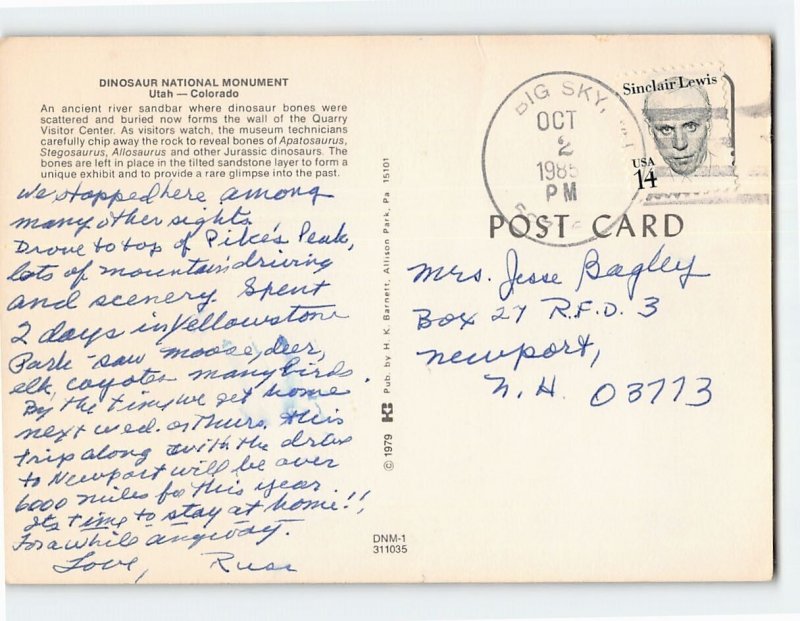 DINOSAUR NATIONAL MONUMENT
Utah — Colorado
An ancient river sandbar where dinosaur bones were
scattered and buried now forms the wall of the Quarry
Visitor Center. As visitors watch, the museum technicians
carefully chip away the rock to reveal bones of Apatosaurus,
Stegosaurus, Allosaurus and other Jurassic dinosaurs. The
bones are left in place in the tilted sandstone layer to form a
unique exhibit and to provide a rare glimpse into the past.
We stopped here among
many other sights
Drove to top of Pike's Peak,
lots of mountain driving
and scenery. Spent
2 days in Yellowstone
Park - saw moose, deer,
elk, coyotes many birds.
By the time we get home
next wed. or Thurs. this
trip along with the drive
to Newport will be over
6000 miles for this year.
Its time to stay at home!!
For a while anyway.
Love, Russ
© 1979 Pub. by H. K. Barnett, Allison Park, Pa 15101
DNM-1
311035
BIG SKY,
OCT
2
1985
PM
Sinclair Lewis
USA
14
POST CARD
Mrs. Jesse Bagley
Box 27 R.F.D. 3
Newport,
N.H. 03773